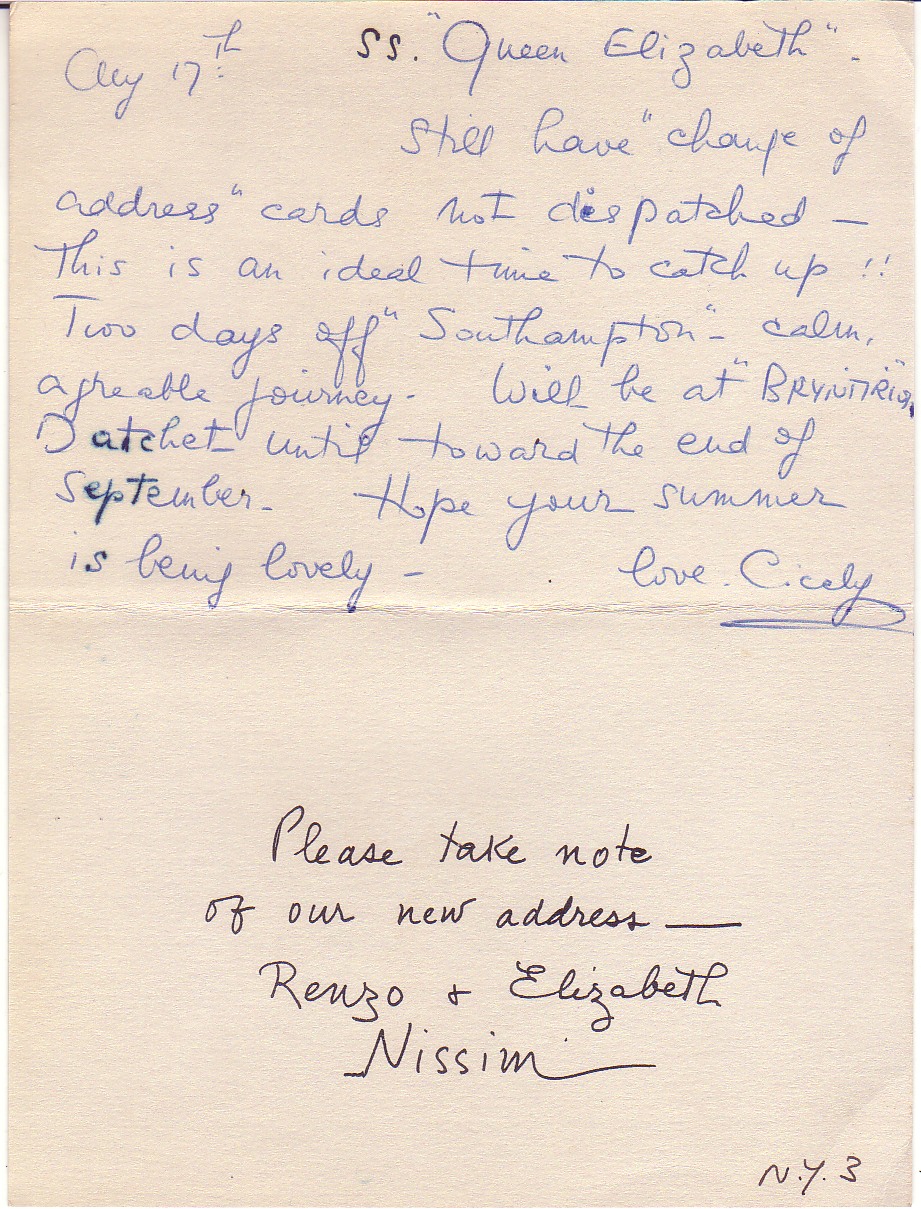 Aug 17th SS. "Queen Elizabeth".
Still have "change of
address" cards not despatched –
This is an ideal time to catch up !!
Two days off "Southampton" – calm,
agreable journey. Will be at
Datchet until toward the end of
September. Hope your summer
is being lovely – love. Cicely
Please take note
of our new address —
Renzo & Elizabeth
Nissim
N.Y. 3